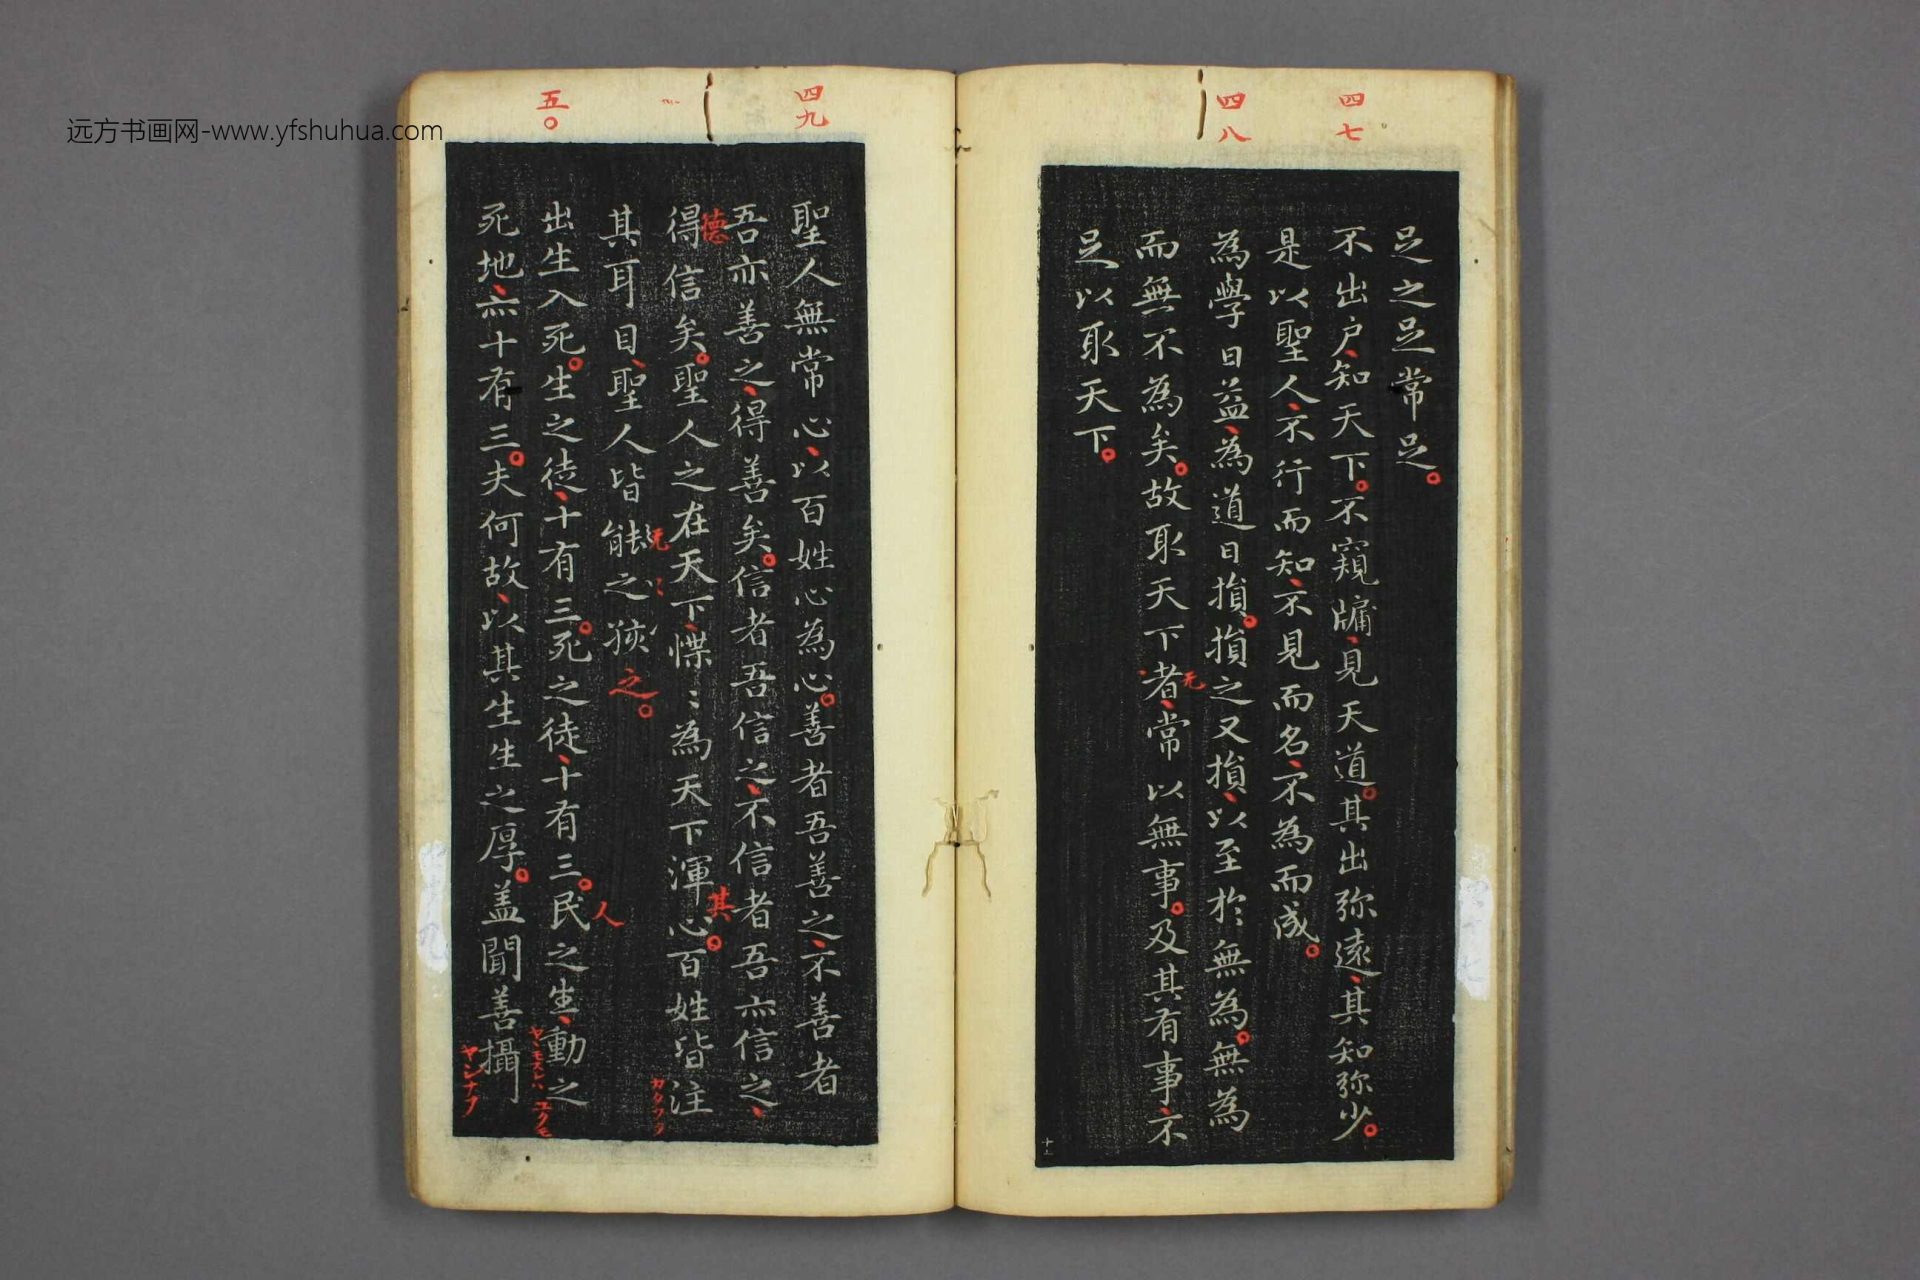 四七
四八
足之足常足。
不出户、知天下。不窺牖、見天道。其出弥遠、其知弥少。
是以聖人、不行而知、不見而名、不為而成。
為學日益、為道日損。損之又損、以至於無為。無為
而無不為矣。故取天下者、常以無事。及其有事、不
无
足以取天下。
十二
四九
五〇
聖人無常心、以百姓心為心。善者吾善之、不善者
吾亦善之、得善矣。信者吾信之、不信者吾亦信之、
德
得信矣。聖人之在天下、惵〻為天下渾心。百姓皆注
其
其耳目、聖人皆䏻之㹟之。
无
カタフヲ
出生入死。生之徒、十有三。死之徒、十有三。民之生、動之
人
ヤヽモスレハ ユクモ
死地、亦十有三。夫何故、以其生生之厚。盖聞善攝
ヤシナフ
远方书画网-www.yfshuhua.com